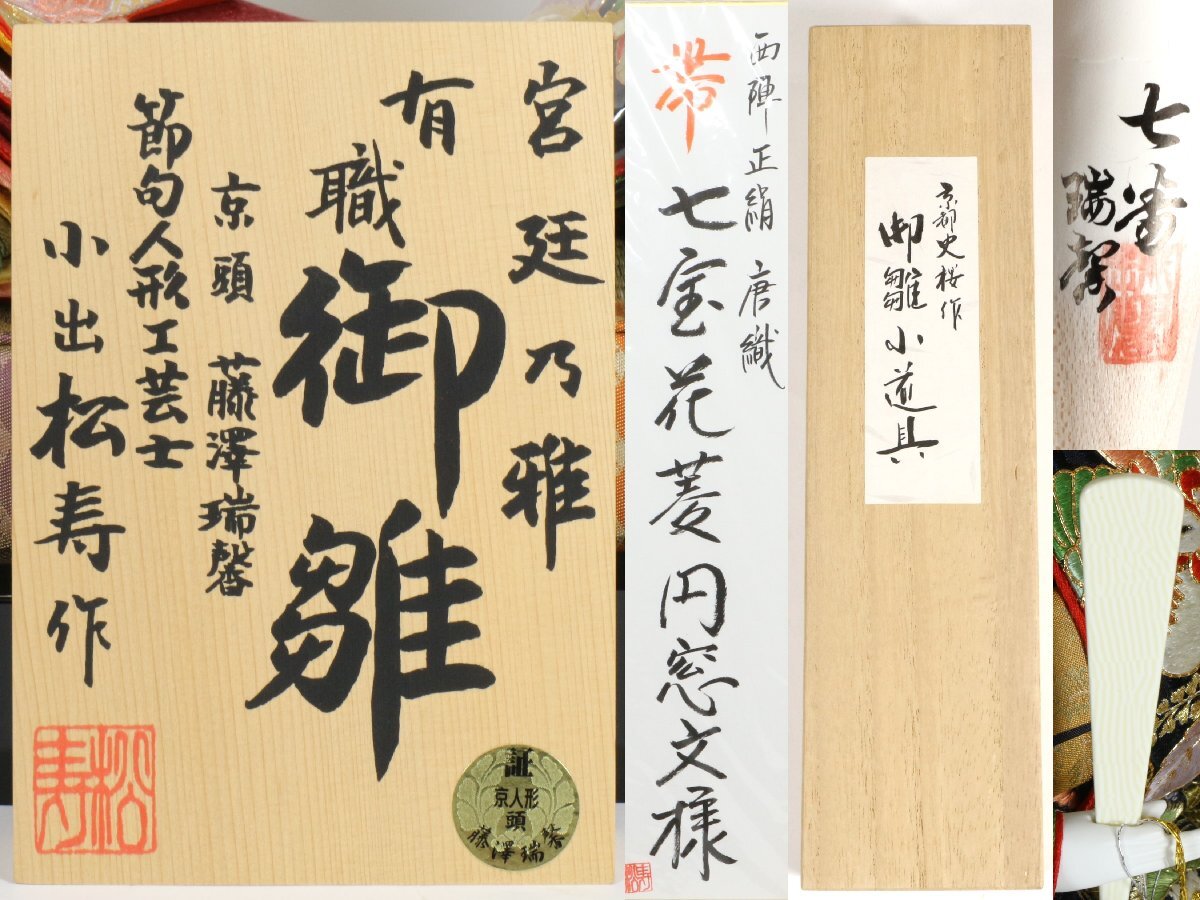 宮廷乃雅
有職御雛
京頭 藤澤瑞馨
節句人形工芸士
小出松寿作
松寿
証
京人形
頭
藤澤瑞馨
西陣正絹 唐織
帯 七宝花菱円窓文様
京都史桜作
御雛小道具
七番
瑞馨